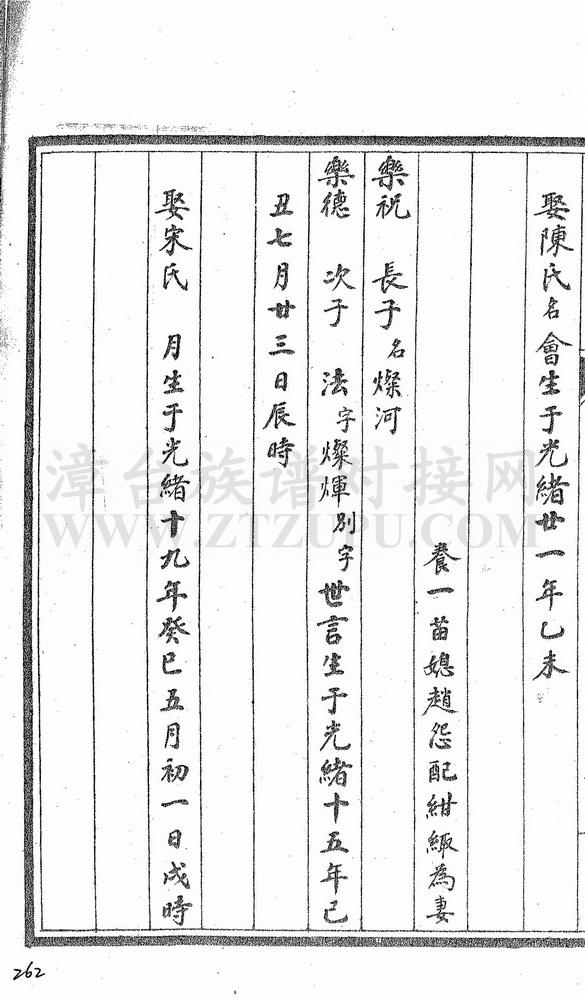 娶陳氏名會生于光緒廿一年乙未
養一苗媳趙怨配紺緅為妻
樂祝 長子名燦河
樂德 次子 法字燦煇別字世言生于光緒十五年已
丑七月廿三日辰時
娶宋氏 月生于光緒十九年癸巳五月初一日戌時
漳台族谱对接网
WWW.ZTZUPU.COM
262